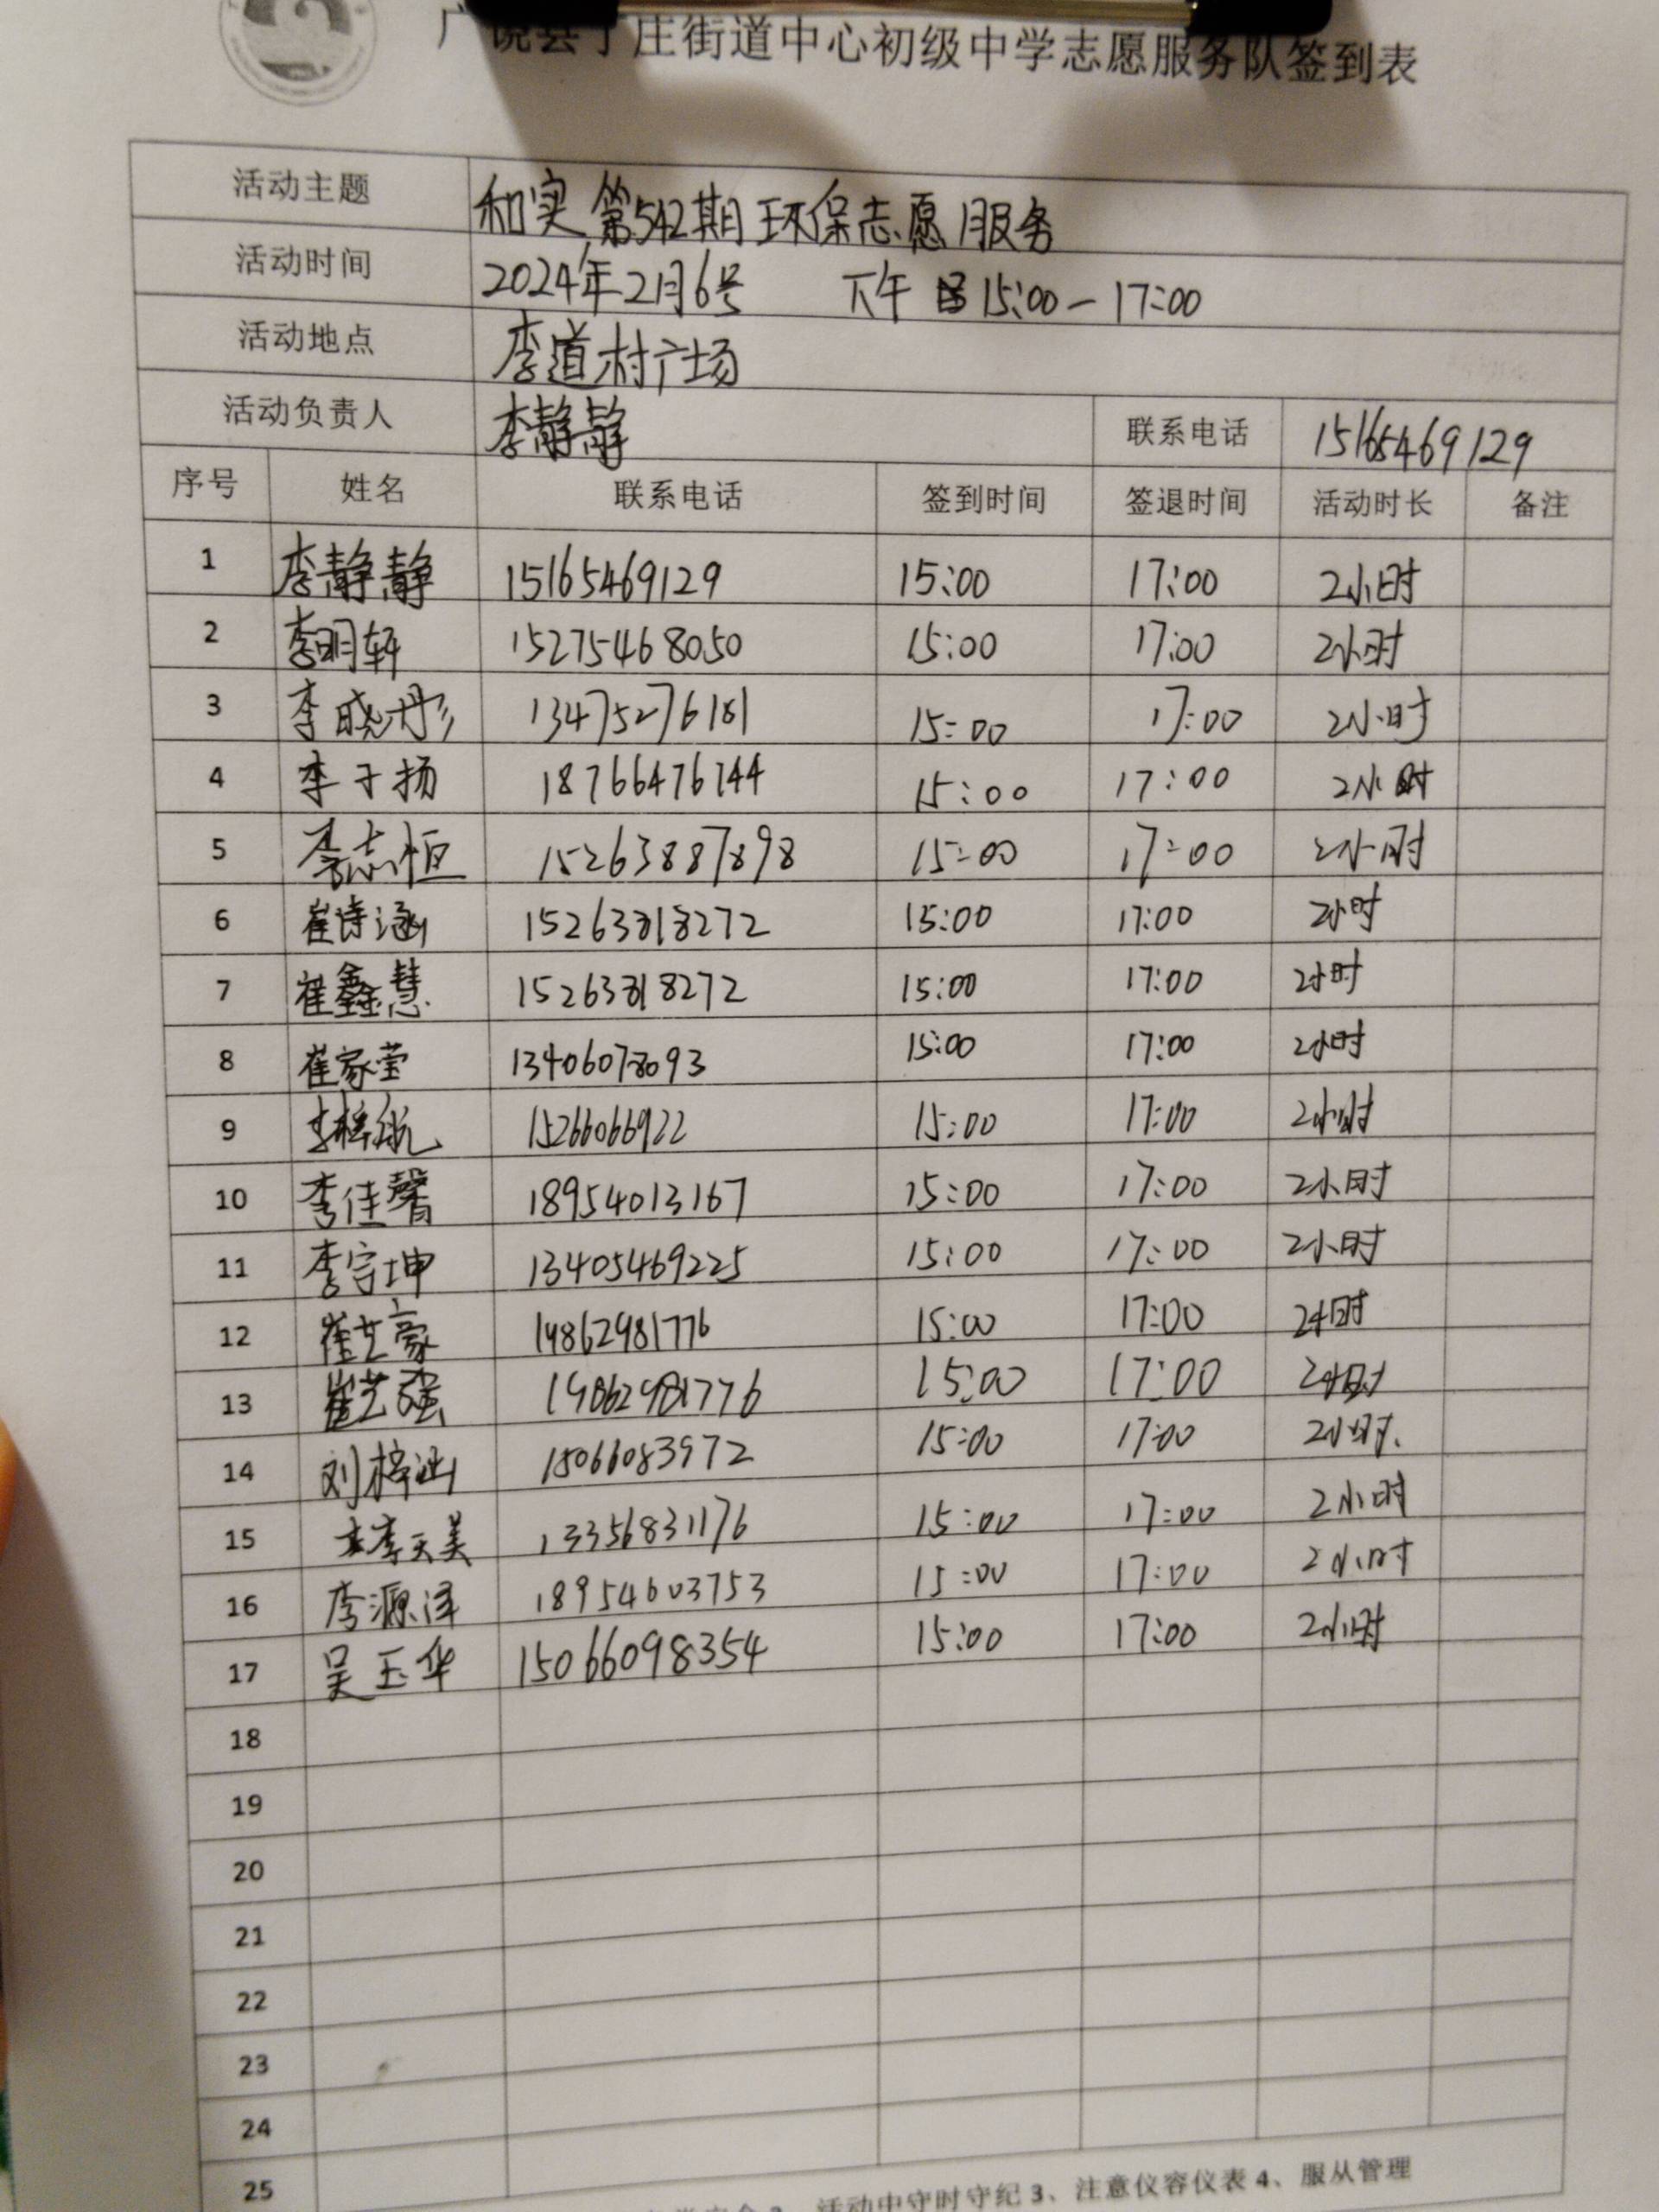 广饶县丁庄街道中心初级中学志愿服务队签到表
活动主题 和实 第542期环保志愿服务
活动时间 2024年2月6号 下午 15:00-17:00
活动地点 李道村广场
活动负责人 李静静 联系电话 15165469129
序号 姓名 联系电话 签到时间 签退时间 活动时长 备注
1 李静静 15165469129 15:00 17:00 2小时
2 李明轩 15275468050 15:00 17:00 2小时
3 李晓彤 13475276181 15:00 17:00 2小时
4 李子扬 18766476744 15:00 17:00 2小时
5 李志恒 15263887898 15:00 17:00 2小时
6 崔诗涵 15263818272 15:00 17:00 2小时
7 崔鑫慧 15263818272 15:00 17:00 2小时
8 崔家莹 13406078093 15:00 17:00 2小时
9 李梓航 15266066922 15:00 17:00 2小时
10 李佳馨 18954013167 15:00 17:00 2小时
11 李宗坤 13405469225 15:00 17:00 2小时
12 崔艺豪 19862981776 15:00 17:00 2小时
13 崔艺强 19862981776 15:00 17:00 2小时
14 刘梓涵 15066083972 15:00 17:00 2小时.
15 李天美 13356831176 15:00 17:00 2小时
16 李源泽 18954603753 15:00 17:00 2小时
17 吴玉华 15066098354 15:00 17:00 2小时
18
19
20
21
22
23
24
25
活动中守时守纪 3、注意仪容仪表 4、服从管理